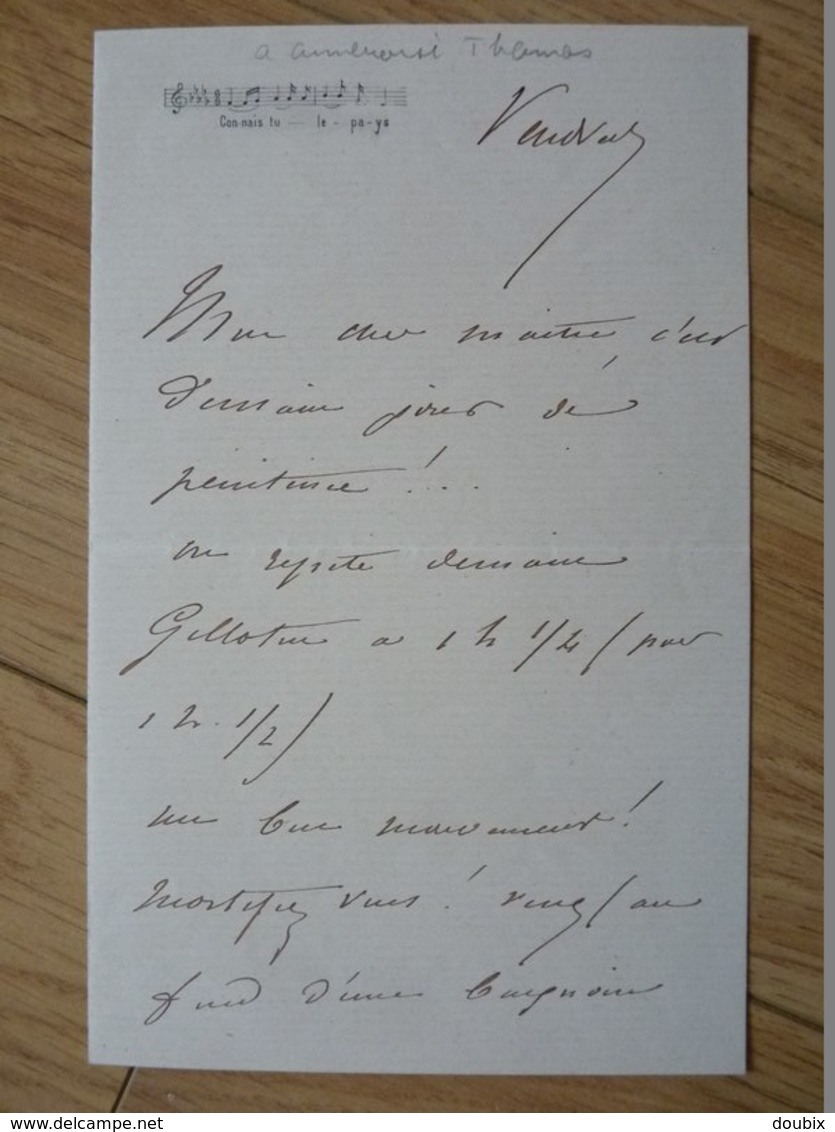 a ambroise Thomas
Con-nais tu — le - pa-ys
Vendredi
Mon cher maître, c'est
demain jour de
pénitence ! ...
on répète demain
Gillotin a 1 h 1/4 (pour
1 h. 1/2)
un bon mouvement !
mortifiez vous ! venez (au
fond d'une baignoire
www.delcampe.net
doubix